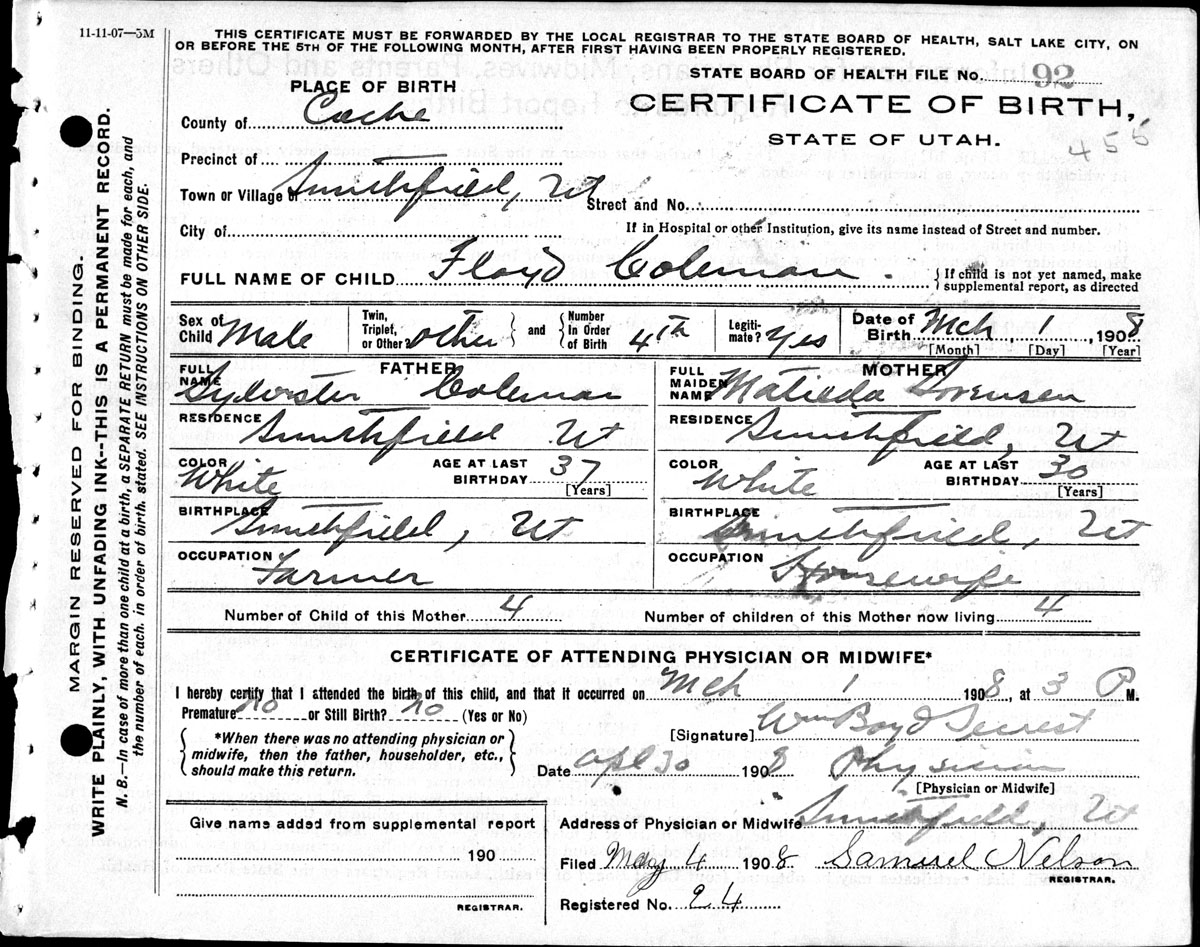 11-11-07—5M
THIS CERTIFICATE MUST BE FORWARDED BY THE LOCAL REGISTRAR TO THE STATE BOARD OF HEALTH, SALT LAKE CITY, ON
OR BEFORE THE 5TH OF THE FOLLOWING MONTH, AFTER FIRST HAVING BEEN PROPERLY REGISTERED.
STATE BOARD OF HEALTH FILE No. 92
PLACE OF BIRTH
CERTIFICATE OF BIRTH,
County of Cache
STATE OF UTAH.
455
Precinct of
Town or Village of Smithfield, Ut
Street and No.
City of
If in Hospital or other Institution, give its name instead of Street and number.
FULL NAME OF CHILD Floyd Coleman. {If child is not yet named, make
supplemental report, as directed
Sex of Child Male
Twin, Triplet, or Other other } and { Number In Order of Birth 4th
Legitimate? Yes
Date of Birth Mch 1 1908
[Month] [Day] [Year]
FATHER
FULL NAME Sylvester Coleman
RESIDENCE Smithfield Ut
COLOR White AGE AT LAST BIRTHDAY 37 [Years]
BIRTHPLACE Smithfield, Ut
OCCUPATION Farmer
MOTHER
FULL MAIDEN NAME Matilda Sorensen
RESIDENCE Smithfield, Ut
COLOR White AGE AT LAST BIRTHDAY 30 [Years]
BIRTHPLACE Smithfield, Ut
OCCUPATION Housewife
Number of Child of this Mother 4 Number of children of this Mother now living 4
CERTIFICATE OF ATTENDING PHYSICIAN OR MIDWIFE*
I hereby certify that I attended the birth of this child, and that it occurred on Mch 1 1908, at 3 P M.
Premature no or Still Birth? no (Yes or No)
{ *When there was no attending physician or
midwife, then the father, householder, etc.,
should make this return. }
[Signature] Wm Boyd Secrest
Date Apl 30 1908 Physician
[Physician or Midwife]
Give name added from supplemental report
190
REGISTRAR.
Address of Physician or Midwife Smithfield, Ut
Filed May 4 1908 Samuel Nelson
REGISTRAR.
Registered No. 24
MARGIN RESERVED FOR BINDING.
WRITE PLAINLY, WITH UNFADING INK--THIS IS A PERMANENT RECORD.
N. B.—In case of more than one child at a birth, a SEPARATE RETURN must be made for each, and
the number of each, in order of birth, stated. SEE INSTRUCTIONS ON OTHER SIDE.